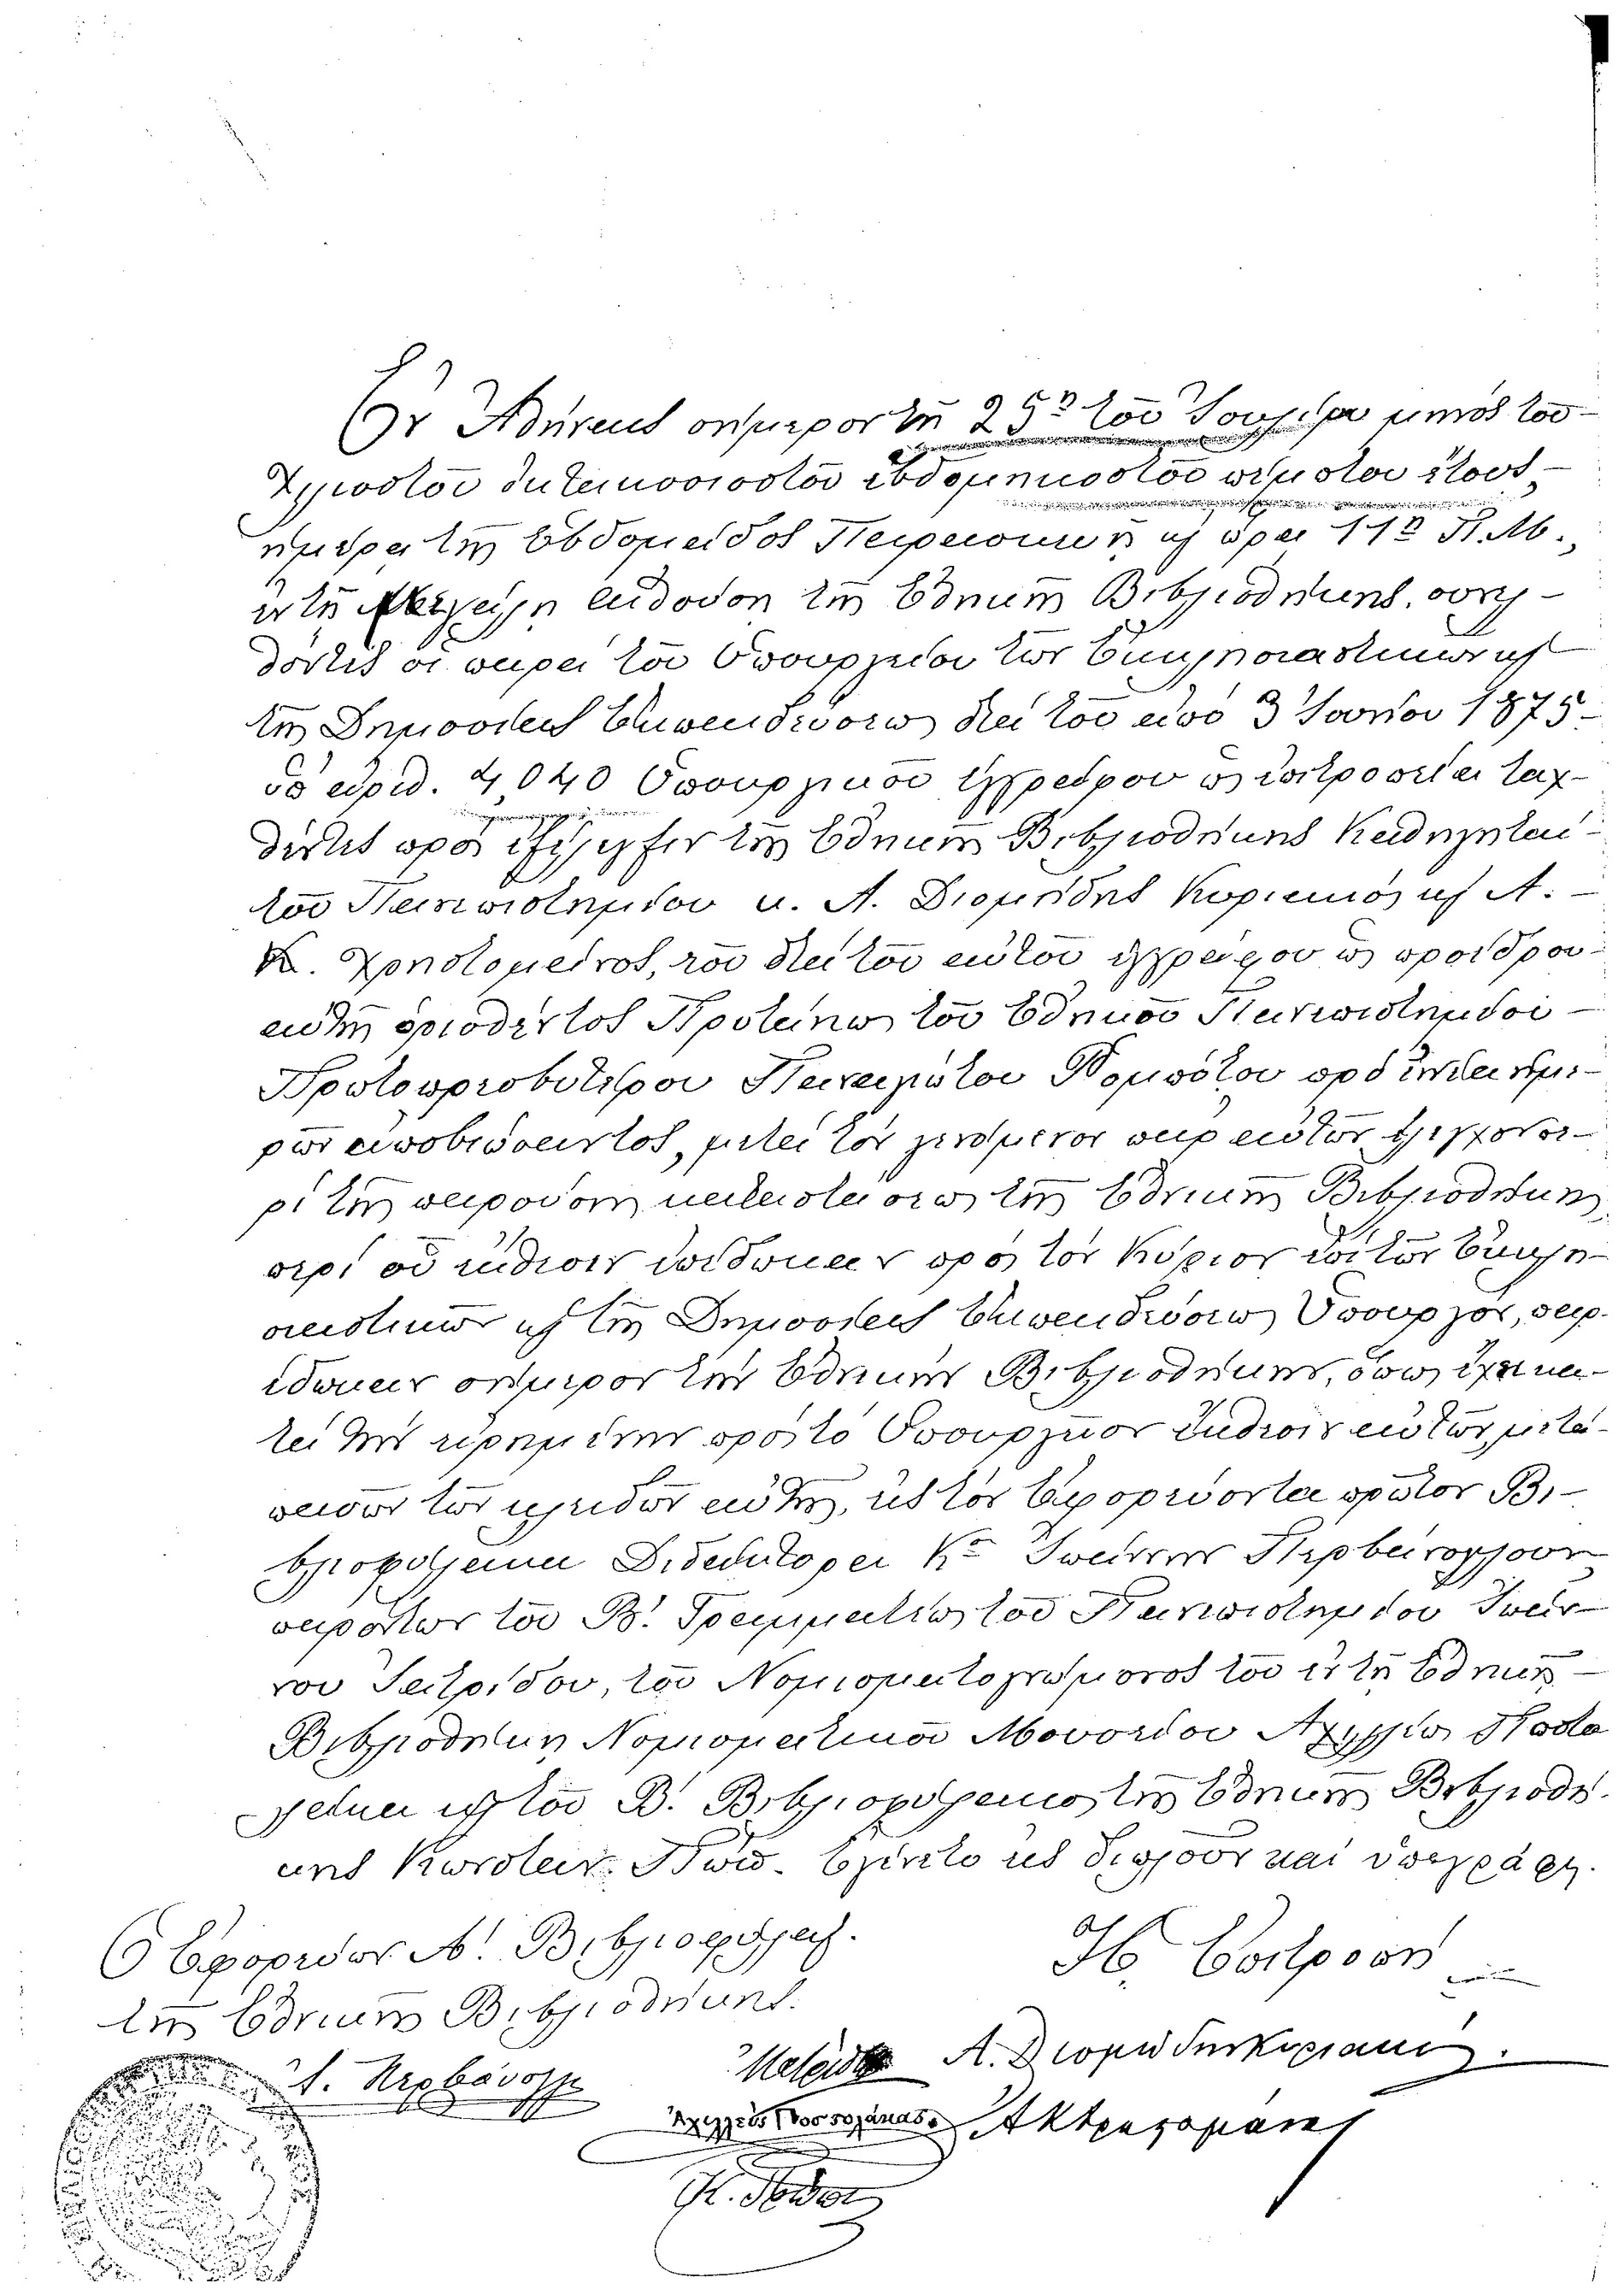 Ἐν Ἀθήναις σήμερον τῇ 25ῃ τοῦ Ἰουλίου μηνὸς τοῦ
χιλιοστοῦ ὀκτακοσιοστοῦ ἑβδομηκοστοῦ πέμπτου ἔτους,
ἡμέρᾳ τῆς ἑβδομάδος Παρασκευῇ καὶ ὥρᾳ 11ῃ Π.Μ.,
ἐν τῇ μεγάλῃ αἰθούσῃ τῆς Ἐθνικῆς Βιβλιοθήκης, συνελ-
θόντες οἱ παρὰ τοῦ Ὑπουργείου τῶν Ἐκκλησιαστικῶν καὶ
τῆς Δημοσίας Ἐκπαιδεύσεως διὰ τοῦ ἀπὸ 3 Ἰουνίου 1875
ὑπ' ἀριθ. 4,040 Ὑπουργικοῦ ἐγγράφου ὡς ἐπιτροπεία ταχ-
θέντες πρὸς ἐξέλεγξιν τῆς Ἐθνικῆς Βιβλιοθήκης Καθηγηταὶ
τοῦ Πανεπιστημίου κ. Α. Διομήδης Κυριακὸς καὶ Α.
Κ. Χρηστομάνος, τοῦ διὰ τοῦ αὐτοῦ ἐγγράφου ὡς προέδρου
αὐτῆς ὁρισθέντος Πρυτάνεως τοῦ Ἐθνικοῦ Πανεπιστημίου
Πρωτοπρεσβυτέρου Παναγιώτου Ῥομπότου πρό τινων ἡμε-
ρῶν ἀποβιώσαντος, μετὰ τὸν γενόμενον παρ' αὐτῶν ἔλεγχον
τῆς παρούσης καταστάσεως τῆς Ἐθνικῆς Βιβλιοθήκης,
περὶ οὗ ἔκθεσιν ἐπέδωκαν πρὸς τὸν Κύριον ἐπὶ τῶν Ἐκκλη-
σιαστικῶν καὶ τῆς Δημοσίας Ἐκπαιδεύσεως Ὑπουργόν, παρ-
έδωκαν σήμερον τὴν Ἐθνικὴν Βιβλιοθήκην, ὅπως
κατὰ τὴν εἰρημένην πρὸς τὸ Ὑπουργεῖον ἔκθεσιν αὐτῶν, μετὰ
πασῶν τῶν κλειδῶν αὐτῆς, εἰς τὸν Ἐφορεύοντα πρῶτον Βι-
βλιοφύλακα Διδάκτορα Κον Ἰωάννην Περβάνογλουν
παρόντων τοῦ Β'. Γραμματέως τοῦ Πανεπιστημίου Ἰωάν-
νου Ἰατρίδου, τοῦ Νομισματογνώμονος τοῦ ἐν τῇ Ἐθνικῇ
Βιβλιοθήκῃ Νομισματικοῦ Μουσείου Ἀχιλλέως Ποστο-
λάκα καὶ τοῦ Β'. Βιβλιοφύλακος τῆς Ἐθνικῆς Βιβλιοθή-
κης Κωνσταντ. Ἐγένετο εἰς διπλοῦν καὶ ὑπεγράφη.
Ὁ Ἐφορεύων Α'. Βιβλιοφύλαξ
τῆς Ἐθνικῆς Βιβλιοθήκης.
Ἰ. Περβάνογλ
Ἡ Ἐπιτροπὴ
Α. Διομήδης Κυριακός.
Ἀχιλλεὺς Ποστολάκας
Α Κ Χρηστομάνος